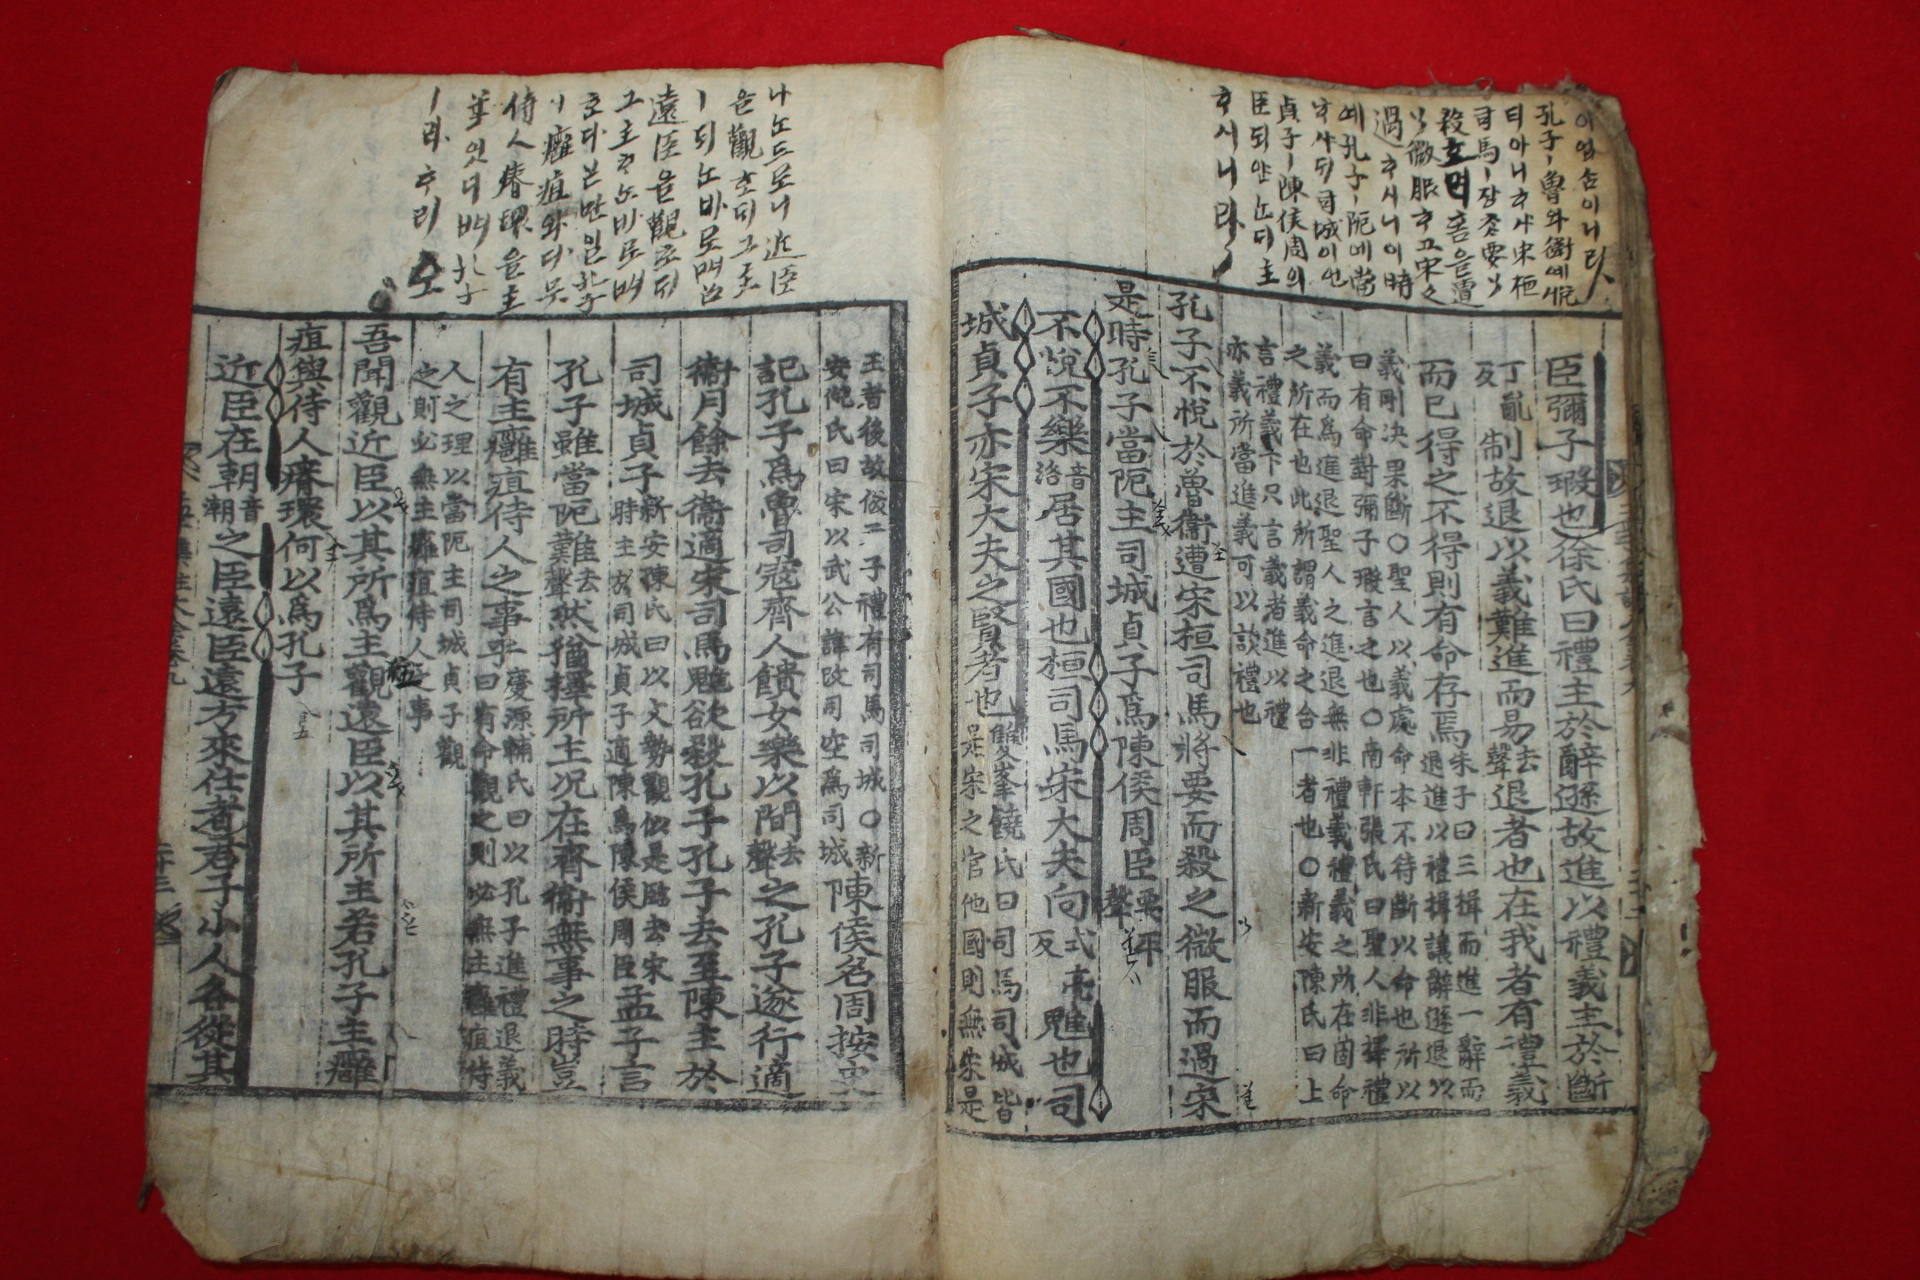 이 업슴이니라
孔子ㅣ魯와衛예悅
티아니ᄒᆞ샤宋桓
司馬ㅣ쟝ᄎᆞ要ᄒᆞ야
殺호려홈을遭
ᄒᆞ야微服ᄒᆞ고宋을
過ᄒᆞ시니이時
예孔子ㅣ阨애當
ᄒᆞ샤ᄃᆡ司城이언
貞子ㅣ陳侯周의
臣되얀ᄂᆞᆫ디主
ᄒᆞ시니라
臣彌子瑕也徐氏曰禮主於辭遜故進以禮義主於斷
丁亂反制故退以義難進而易去聲退者也在我者有禮義
而已得之不得則有命存焉朱子曰三揖而進一辭而退進以禮揖讓辭遜退以
義剛決果斷○聖人以義處命本不待斷以命也所以
曰有命對彌子瑕言之也○南軒張氏曰聖人非擇禮
義而爲進退聖人之進退無非禮義禮義之所在固命
之所在也此所謂義命之合一者也○新安陳氏曰上
言禮義下只言義者進以禮
亦義所當進義可以該禮也
孔子不悅於魯衛遭宋桓司馬將要而殺之微服而過宋
是時孔子當阨主司城貞子爲陳侯周臣要平聲
不悅不樂音洛居其國也桓司馬宋大夫向式亮反魋也司
城貞子亦宋大夫之賢者也雙峯饒氏曰司馬司城皆是宋之官他國則無宋是
나ᄂᆞᆫ드로니近臣
을觀호ᄃᆡ그主
ㅣ되ᄂᆞᆫ바로ᄡᅥᄒᆞ고
遠臣을觀호ᄃᆡ
그主ᄒᆞᄂᆞᆫ바로ᄡᅥ
ᄒᆞ다호니만일孔子
ㅣ癰疽와다ᄆᆞᆺ
侍人瘠環을主
ᄒᆞ시면엇디ᄡᅥ孔子
ㅣ라ᄒᆞ리오
王者後故倣二子禮有司馬司城○新
安倪氏曰宋以武公諱改司空爲司城陳侯名周按史
記孔子爲魯司寇齊人饋女樂以間去聲之孔子遂行適
衛月餘去衛適宋司馬魋欲殺孔子孔子去至陳主於
司城貞子新安陳氏曰以文勢觀似是臨去宋時主於司城貞子適陳爲陳侯周臣孟子言
孔子雖當阨難去聲然猶擇所主况在齊衛無事之時豈
有主癰疽侍人之事乎慶源輔氏曰以孔子進禮退義曰有命觀之則必無主癰疽侍
人之理以當阨主司城貞子觀
之則必無主癰疽侍人之事
吾聞觀近臣以其所爲主觀遠臣以其所主若孔子主癰
疽與侍人瘠環何以爲孔子
近臣在朝音潮之臣遠臣遠方來仕者君子小人各從其